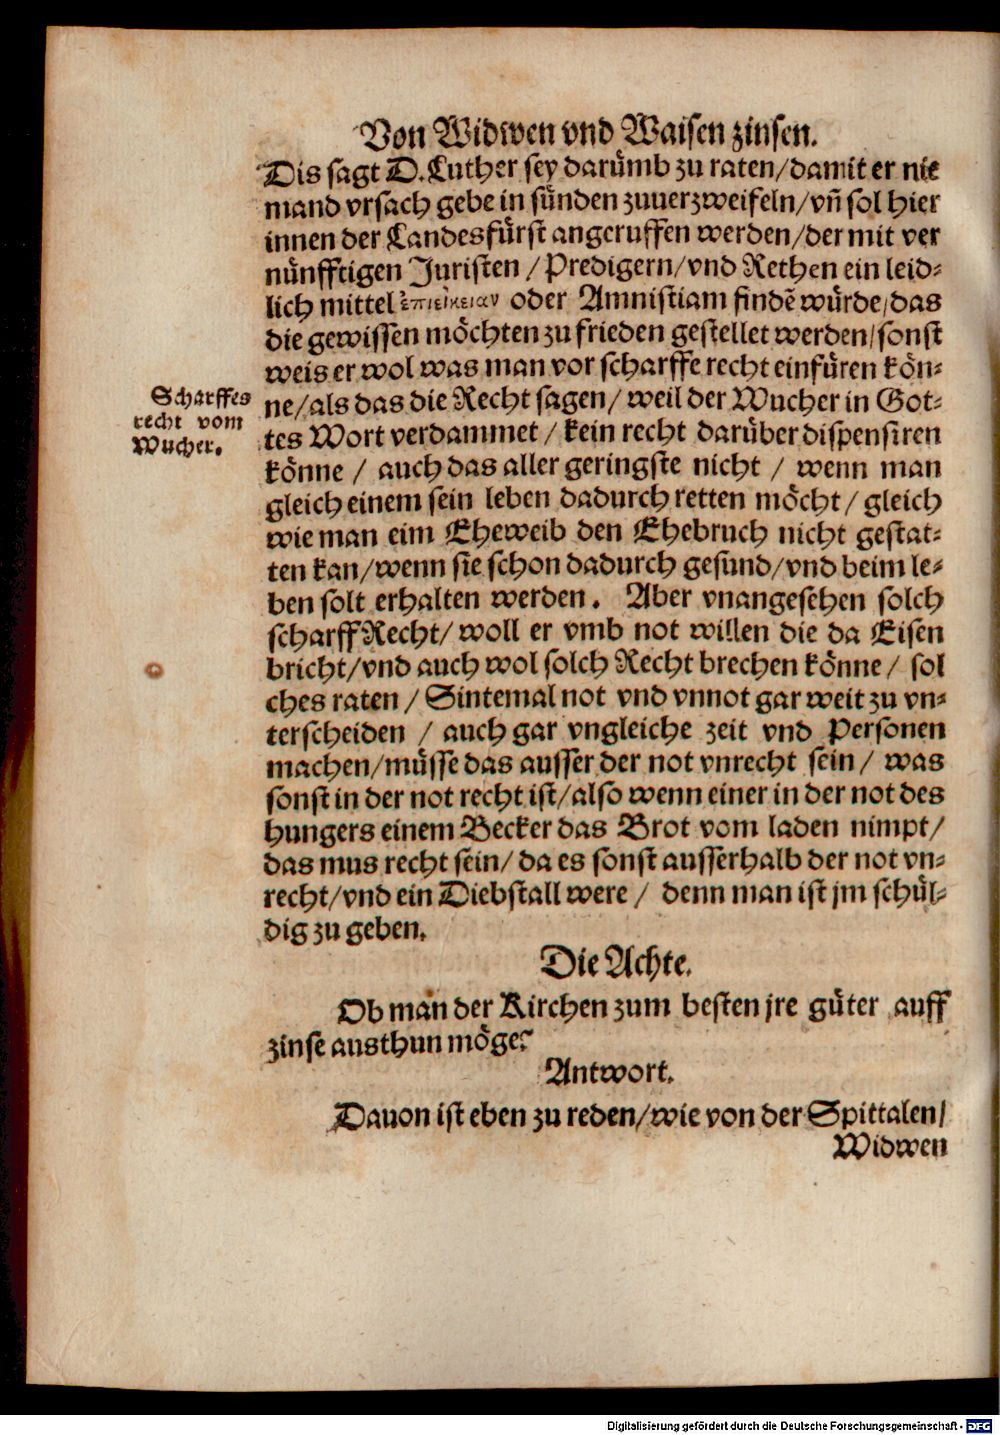 Von Widwen vnd Waisen zinsen.
Dis sagt D. Luther sey darümb zu raten/damit er nie
mand vrsach gebe in sünden zuuerzweifeln/vñ sol hier
innen der Landesfürst angeruffen werden/der mit ver
nünfftigen Juristen /Predigern/vnd Rethen ein leid⸗
lich mittel ἐπιείκειαν oder Amnistiam findẽ würde/das
die gewissen möchten zu frieden gestellet werden/sonst
weis er wol was man vor scharffe recht einfüren kön⸗
ne/als das die Recht sagen/ weil der Wucher in Got⸗
tes Wort verdammet / kein recht darüber dispensiren
könne / auch das aller geringste nicht / wenn man
gleich einem sein leben dadurch retten möcht/ gleich
wie man eim Eheweib den Ehebruch nicht gestat⸗
ten kan/wenn sie schon dadurch gesund/vnd beim le⸗
ben solt erhalten werden. Aber vnangesehen solch
scharff Recht/ woll er vmb not willen die da Eisen
bricht/vnd auch wol solch Recht brechen könne / sol
ches raten / Sintemal not vnd vnnot gar weit zu vn⸗
terscheiden / auch gar vngleiche zeit vnd Personen
machen/müsse das ausser der not vnrecht sein / was
sonst in der not recht ist/also wenn einer in der not des
hungers einem Becker das Brot vom laden nimpt/
das mus recht sein/ da es sonst ausserhalb der not vn⸗
recht/vnd ein Diebstall were / denn man ist jm schül⸗
dig zu geben.
Scharffes
recht vom
Wucher.
Die Achte.
Ob man der Kirchen zum besten jre güter auff
zinse austhun möge?
Antwort.
Dauon ist eben zu reden/wie von der Spittalen/
Widwen
Digitalisierung gefördert durch die Deutsche Forschungsgemeinschaft - DFG